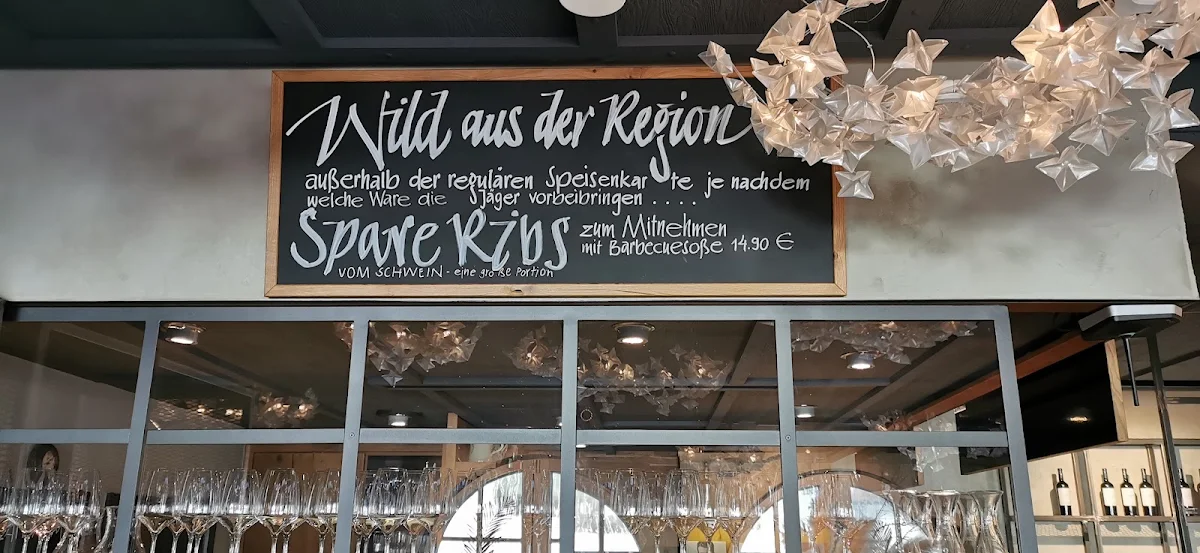 Wild aus der Region
außerhalb der regulären Speisenkarte je nachdem
welche Ware die Jäger vorbeibringen ....
Spare Ribs
zum Mitnehmen
mit Barbecuesoße 14.90 €
VOM SCHWEIN - eine große Portion